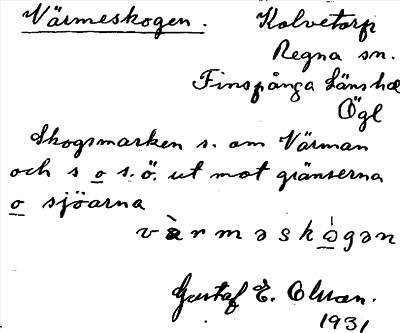 Värmeskogen. Kolvetorp
Regna sn.
Finspånga länshd
Ögl
Skogsmarken s. om Värman
och s o s.ö. ut mot gränserna
o sjöarna
värmeskògen
Gustaf E. Olsson.
1931